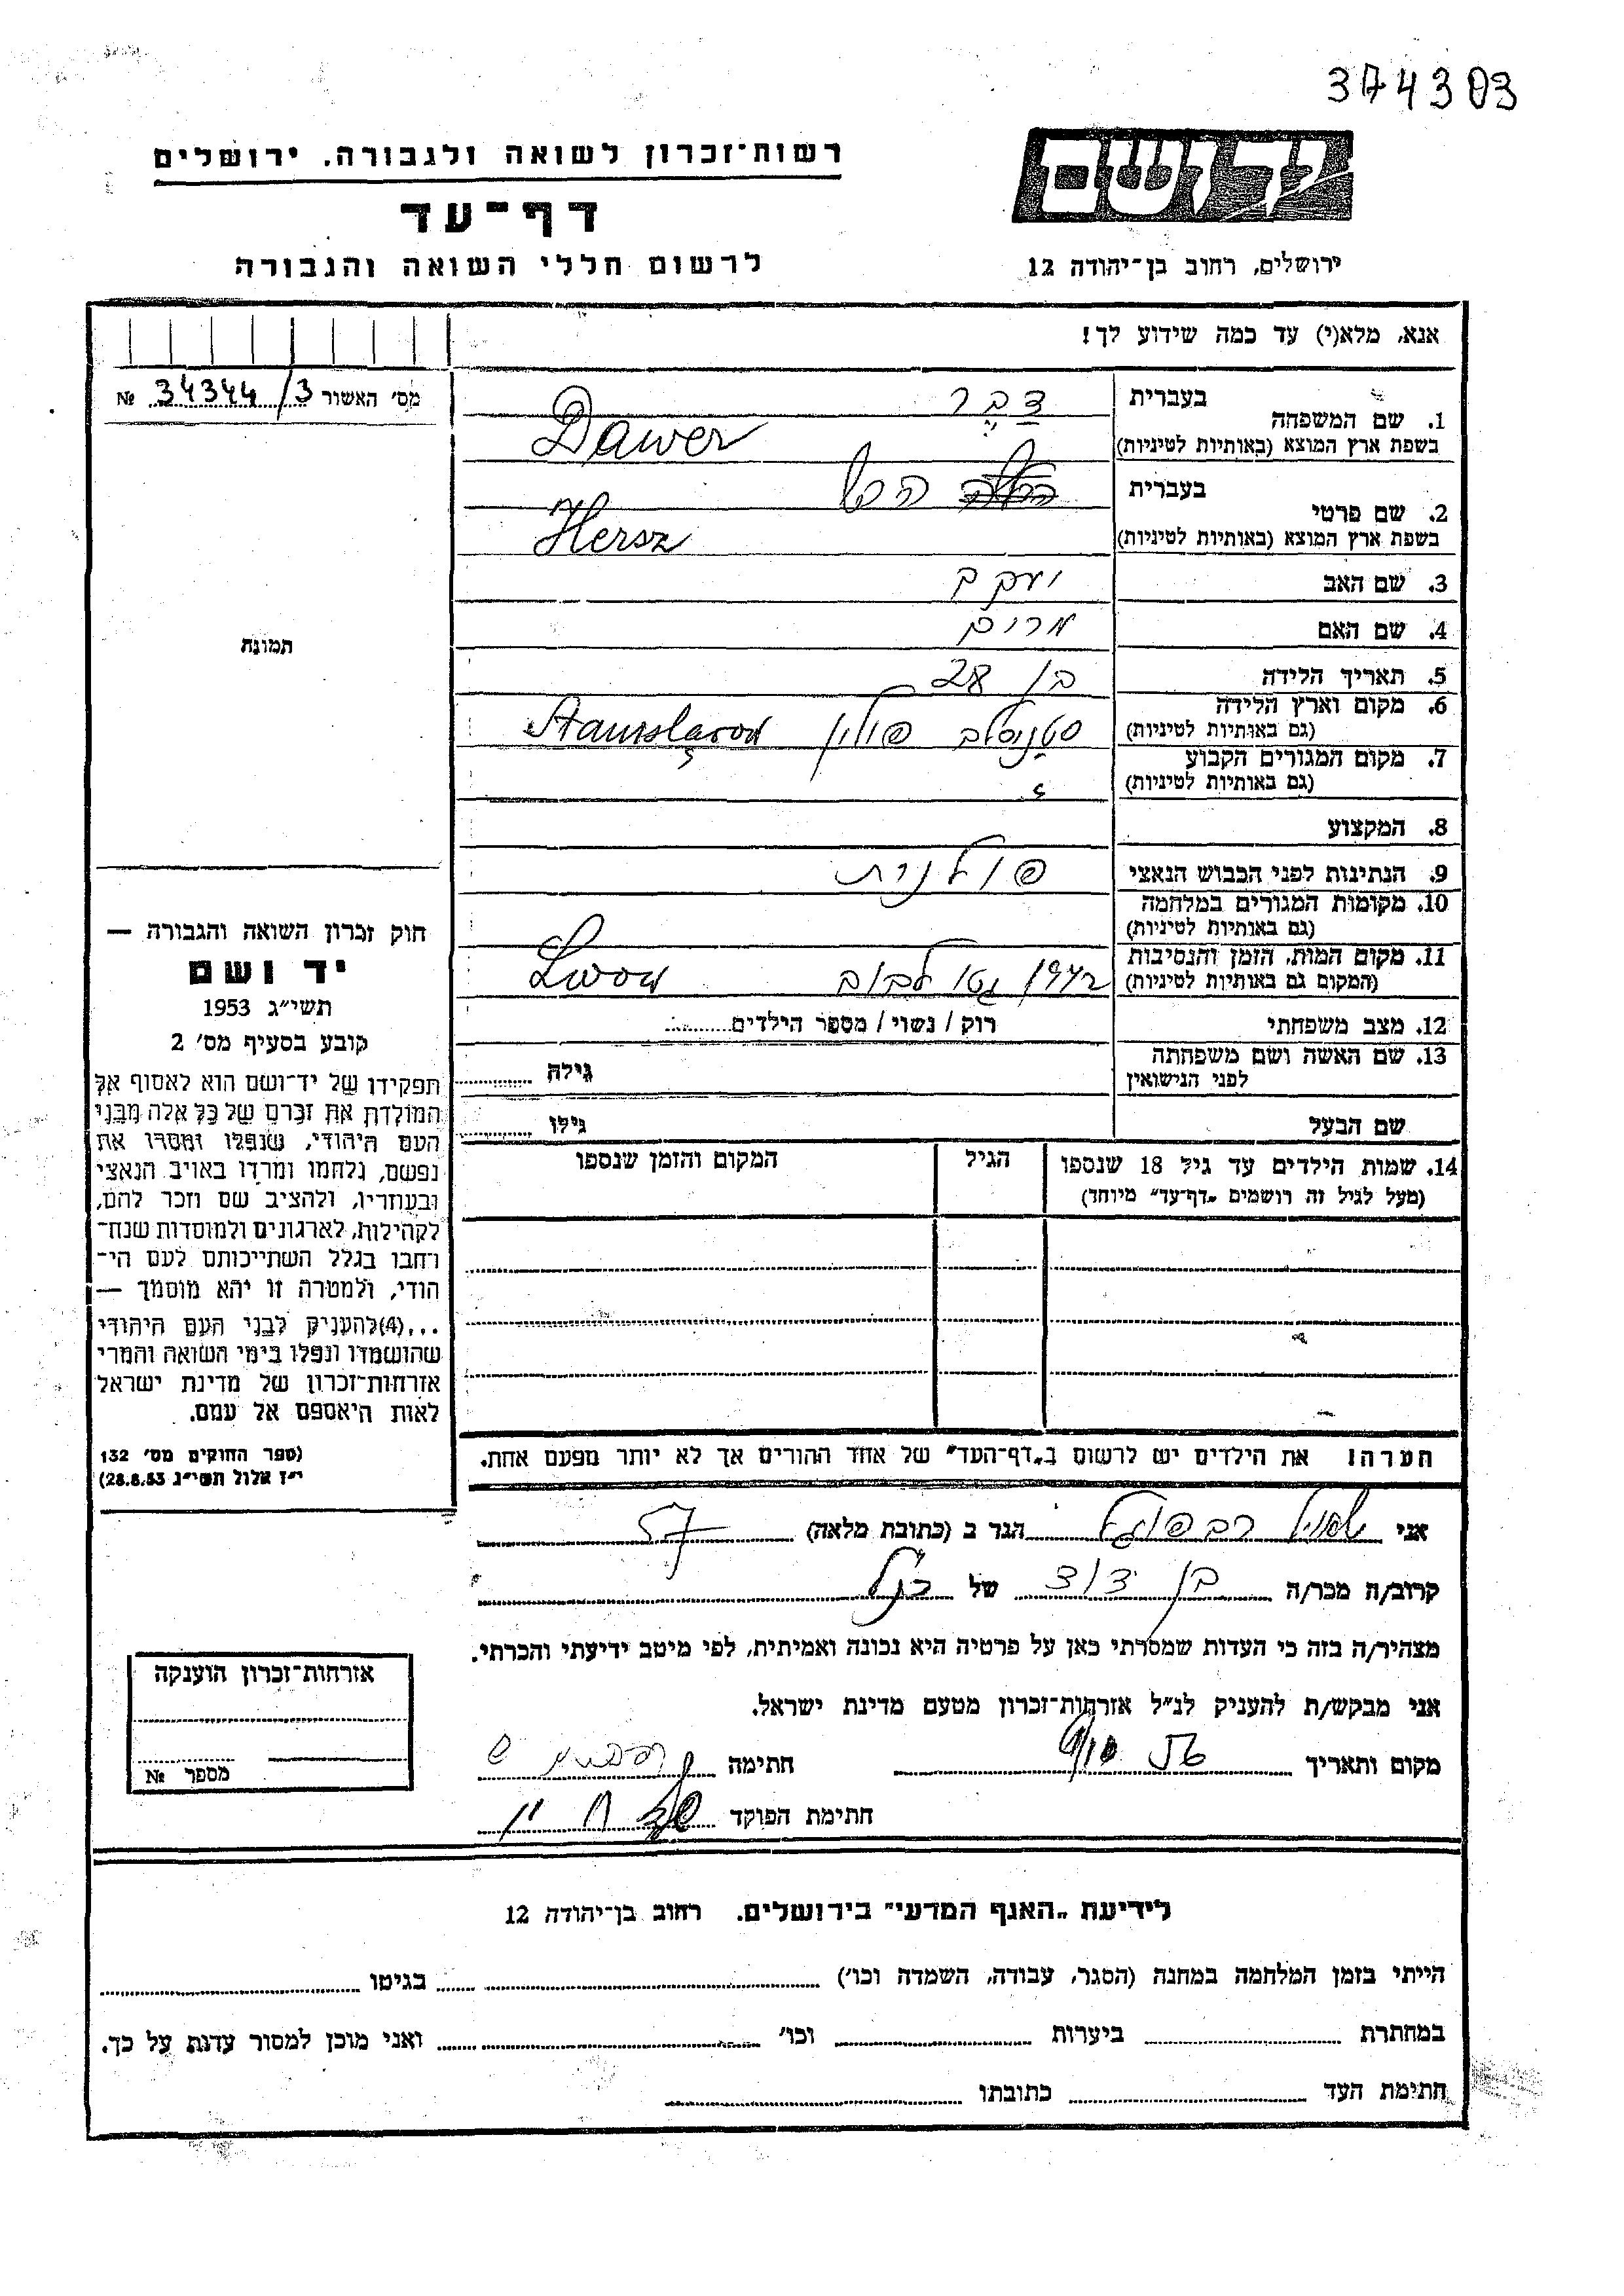 374303
רשות־זכרון לשואה ולגבורה. ירושלים
דף־עד
לרשום חללי השואה והגבורה
יד ושם
ירושלים, רחוב בן־יהודה 12
אנא, מלא(י) עד כמה שידוע לך!
מס׳ האשור 34344/3 №
1. שם המשפחה
בעברית דבר
בשפת ארץ המוצא (באותיות לטיניות) Dawer
2. שם פרטי
בעברית הרש
בשפת ארץ המוצא (באותיות לטיניות) Hersz
3. שם האב יעקב
4. שם האם מרים
5. תאריך הלידה בן 28
6. מקום וארץ הלידה
(גם באותיות לטיניות) סטניסלב פולין Stanislawow
7. מקום המגורים הקבוע
(גם באותיות לטיניות)
8. המקצוע
9. הנתינות לפני הכבוש הנאצי פולנית
10. מקומות המגורים במלחמה
(גם באותיות לטיניות)
11. מקום המות, הזמן והנסיבות
(המקום גם באותיות לטיניות) 1942 גטו לבוב Lwow
12. מצב משפחתי רוק / נשוי / מספר הילדים
13. שם האשה ושם משפחתה
לפני הנישואין גילה
שם הבעל גילו
14. שמות הילדים עד גיל 18 שנספו הגיל המקום והזמן שנספו
(מעל לגיל זה רושמים „דף־עד״ מיוחד)
הערה! את הילדים יש לרשום ב„דף־העד״ של אחד ההורים אך לא יותר מפעם אחת.
תמונה
חוק זכרון השואה והגבורה —
יד ושם
תשי״ג 1953
קובע בסעיף מס׳ 2
תפקידו של יד־ושם הוא לאסוף אל
המולדת את זכרם של כל אלה מבני
העם היהודי, שנפלו ומסרו את
נפשם, נלחמו ומרדו באויב הנאצי
ובעוזריו, ולהציב שם וזכר להם,
לקהילות, לארגונים ולמוסדות שנח־
רחבו בגלל השתייכותם לעם הי־
הודי, ולמטרה זו יהא מוסמך —
...(4)להעניק לבני העם היהודי
שהושמדו ונפלו בימי השואה והמרי
אזרחות־זכרון של מדינת ישראל
לאות היאספם אל עמם.
(ספר החוקים מס׳ 132
י״ז אלול תשי״ג 28.8.53)
אני הגר ב (כתובת מלאה)
קרוב/ה מכר/ה בן דוד של הנ״ל
מצהיר/ה בזה כי העדות שמסרתי כאן על פרטיה היא נכונה ואמיתית, לפי מיטב ידיעתי והכרתי.
אני מבקש/ת להעניק לנ״ל אזרחות־זכרון מטעם מדינת ישראל.
מקום ותאריך חתימה
חתימת הפוקד
אזרחות־זכרון הוענקה
מספר №
לידיעת „האגף המדעי״ בירושלים. רחוב בן־יהודה 12
הייתי בזמן המלחמה במחנה (הסגר, עבודה, השמדה וכו׳) בגיטו
במחתרת ביערות וכו׳ ואני מוכן למסור עדות על כך.
חתימת העד כתובתו